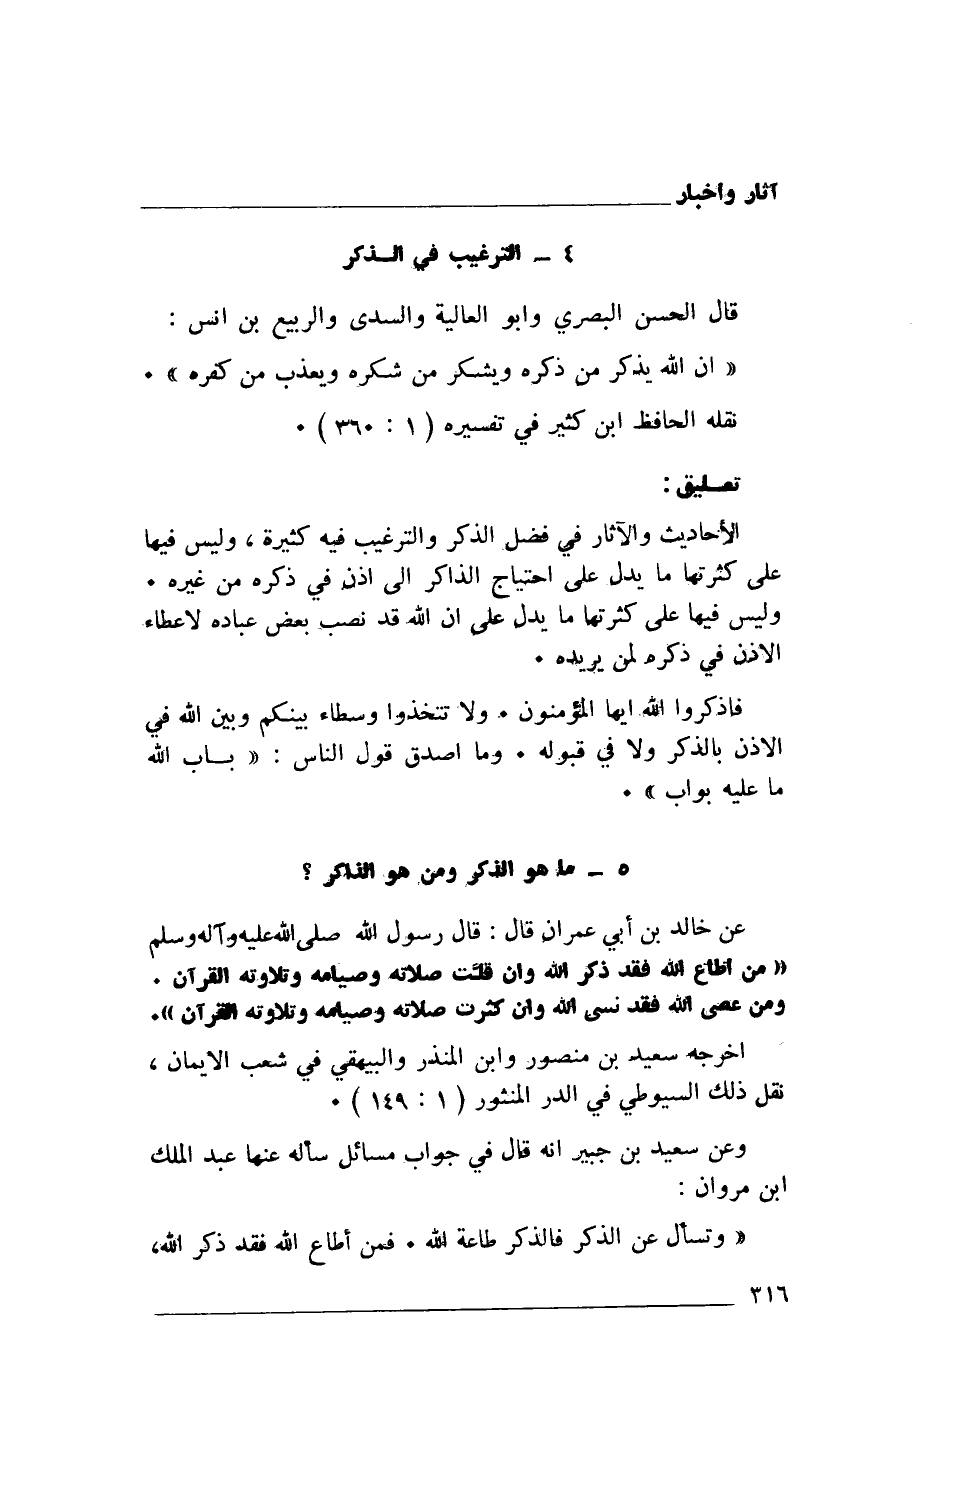 آثار وأخبار
٤ ــ الترغيب في الـــذكر
قال الحسن البصري وابو العالية والسدى والربيع بن انس :
« ان الله يذكر من ذكره ويشكر من شكره ويعذب من كفره » ٠
نقله الحافظ ابن كثير في تفسيره ( ١ : ٣٦٠ ) ٠
تعـــليق :
الأحاديث والآثار في فضل الذكر والترغيب فيه كثيرة ، وليس فيها
على كثرتها ما يدل على احتياج الذاكر الى اذن في ذكره من غيره ٠
وليس فيها على كثرتها ما يدل على ان الله قد نصب بعض عباده لاعطاء
الاذن في ذكره لمن يريده ٠
فاذكروا الله ايها المؤمنون ٠ ولا تتخذوا وسطاء بينكم وبين الله في
الاذن بالذكر ولا في قبوله ٠ وما اصدق قول الناس : « بـــاب الله
ما عليه بواب » ٠
٥ ــ ما هو الذكر ومن هو الذاكر ؟
عن خالد بن أبي عمران قال : قال رسول الله صلى الله عليه وآله وسلم
« من اطاع الله فقد ذكر الله وان قلت صلاته وصيامه وتلاوته القرآن ٠
ومن عصى الله فقد نسى الله وان كثرت صلاته وصيامه وتلاوته القرآن »٠
اخرجه سعيد بن منصور وابن المنذر والبيهقي في شعب الايمان ،
نقل ذلك السيوطي في الدر المنثور ( ١ : ١٤٩ ) ٠
وعن سعيد بن جبير انه قال في جواب مسائل سأله عنها عبد الملك
ابن مروان :
« وتسأل عن الذكر فالذكر طاعة الله ٠ فمن أطاع الله فقد ذكر الله،
٣١٦